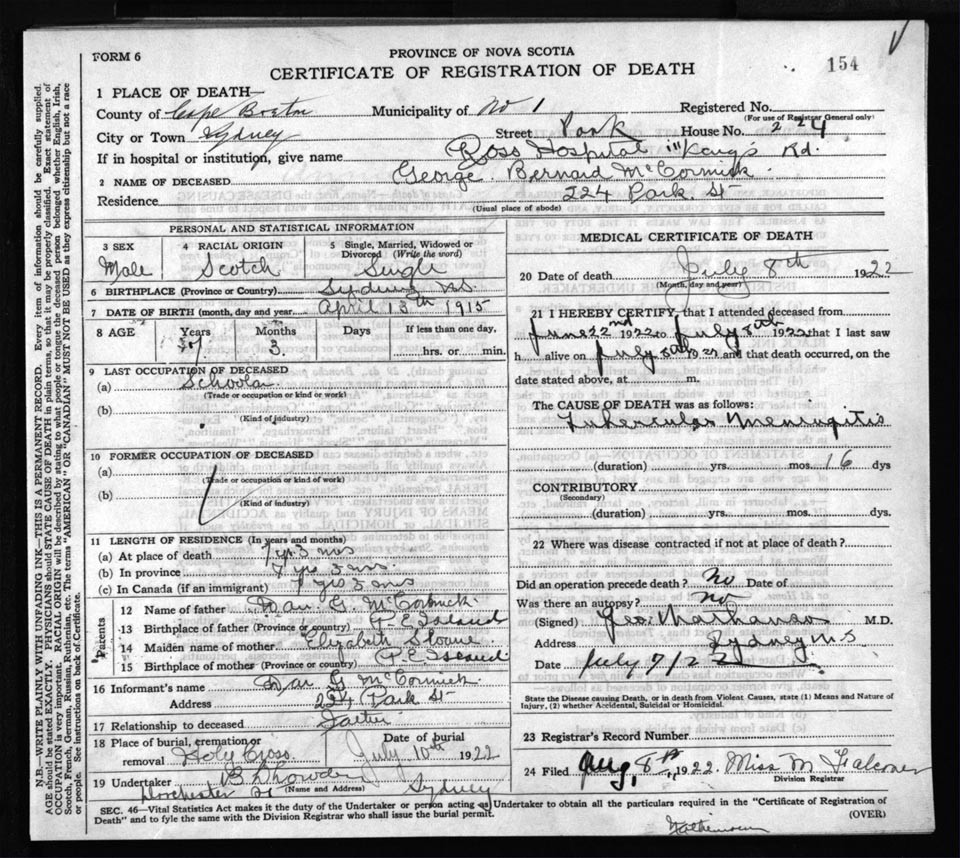 FORM 6
PROVINCE OF NOVA SCOTIA
CERTIFICATE OF REGISTRATION OF DEATH
154
1 PLACE OF DEATH—
County of Cape Breton Municipality of No 1 Registered No.
(For use of Registrar General only)
City or Town Sydney Street Park House No. 224
If in hospital or institution, give name Ross Hospital "Kings Rd.
2 NAME OF DECEASED George Bernard McCormick
Residence 224 Park St
(Usual place of abode)
PERSONAL AND STATISTICAL INFORMATION
3 SEX 4 RACIAL ORIGIN 5 Single, Married, Widowed or Divorced (Write the word)
Male Scotch Single
6 BIRTHPLACE (Province or Country) Sydney N.S.
7 DATE OF BIRTH (month, day and year) April 13th 1915
8 AGE Years Months Days If less than one day,
7 3 hrs. or min.
9 LAST OCCUPATION OF DECEASED
(a) Scholar
(Trade or occupation or kind or work)
(b)
(Kind of industry)
10 FORMER OCCUPATION OF DECEASED
(a)
(Trade or occupation or kind of work)
(b)
(Kind of industry)
11 LENGTH OF RESIDENCE (In years and months)
(a) At place of death 7 yr 3 ms
(b) In province 7 yrs 3 ms.
(c) In Canada (if an immigrant) 7 yrs 3 ms
Parents
12 Name of father Dan. G. McCormick
13 Birthplace of father (Province or country) P. E Island
14 Maiden name of mother Elizabeth
15 Birthplace of mother (Province or country) P. E Island.
16 Informant's name Dan G McCormick
Address 224 Park St
17 Relationship to deceased Father
18 Place of burial, cremation or removal Holy Cross Date of burial July 10th 1922
19 Undertaker
(Name and Address)
Dorchester St Sydney
MEDICAL CERTIFICATE OF DEATH
20 Date of death July 8th 1922
(Month, day and year)
21 I HEREBY CERTIFY, that I attended deceased from
June 22nd 1922 to July 8th 1922 that I last saw
h alive on July 8th 1922 and that death occurred, on the
date stated above, at m.
The CAUSE OF DEATH was as follows:
Tubercular Meningitis
(duration) yrs. mos. 16 dys
CONTRIBUTORY
(Secondary)
(duration) yrs. mos. dys.
22 Where was disease contracted if not at place of death?
Did an operation precede death? No Date of
Was there an autopsy? No
(Signed) Geo. M.D.
Address Sydney N.S
Date July 9/22
State the Disease causing Death, or in deaths from Violent Causes, state (1) Means and Nature of
Injury, (2) whether Accidental, Suicidal or Homicidal.
23 Registrar's Record Number
24 Filed Aug, 8th, 1922. Miss M Falconer
Division Registrar
SEC. 46—Vital Statistics Act makes it the duty of the Undertaker or person acting as Undertaker to obtain all the particulars required in the "Certificate of Registration of
Death" and to fyle the same with the Division Registrar who shall issue the burial permit.
(OVER)
N.B.—WRITE PLAINLY WITH UNFADING INK—THIS IS A PERMANENT RECORD. Every item of information should be carefully supplied.
AGE should be stated EXACTLY. PHYSICIANS should STATE CAUSE OF DEATH in plain terms, so that it may be properly classified. Exact statement of
OCCUPATION is very important. RACIAL ORIGIN will be described by stating to what people or tongue the deceased person belonged whether English, Irish,
Scotch, French, German, Russian, Ruthenian, etc. The terms "AMERICAN" OR "CANADIAN" MUST NOT BE USED as they express citizenship but not a race
or people. See instructions on back of Certificate.